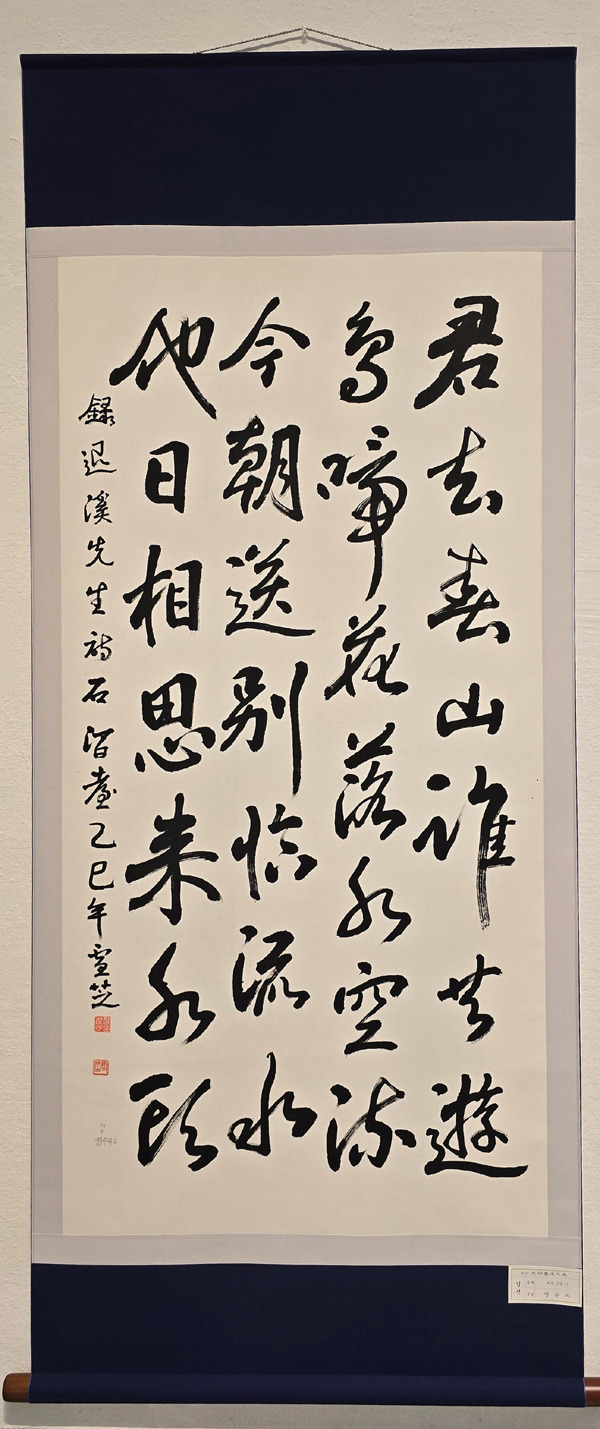 君去春山誰共遊
鳥啼花落水空流
今朝送別臨流水
他日相思來水頭
錄退溪先生詩 石留臺 乙巳年 雪芝